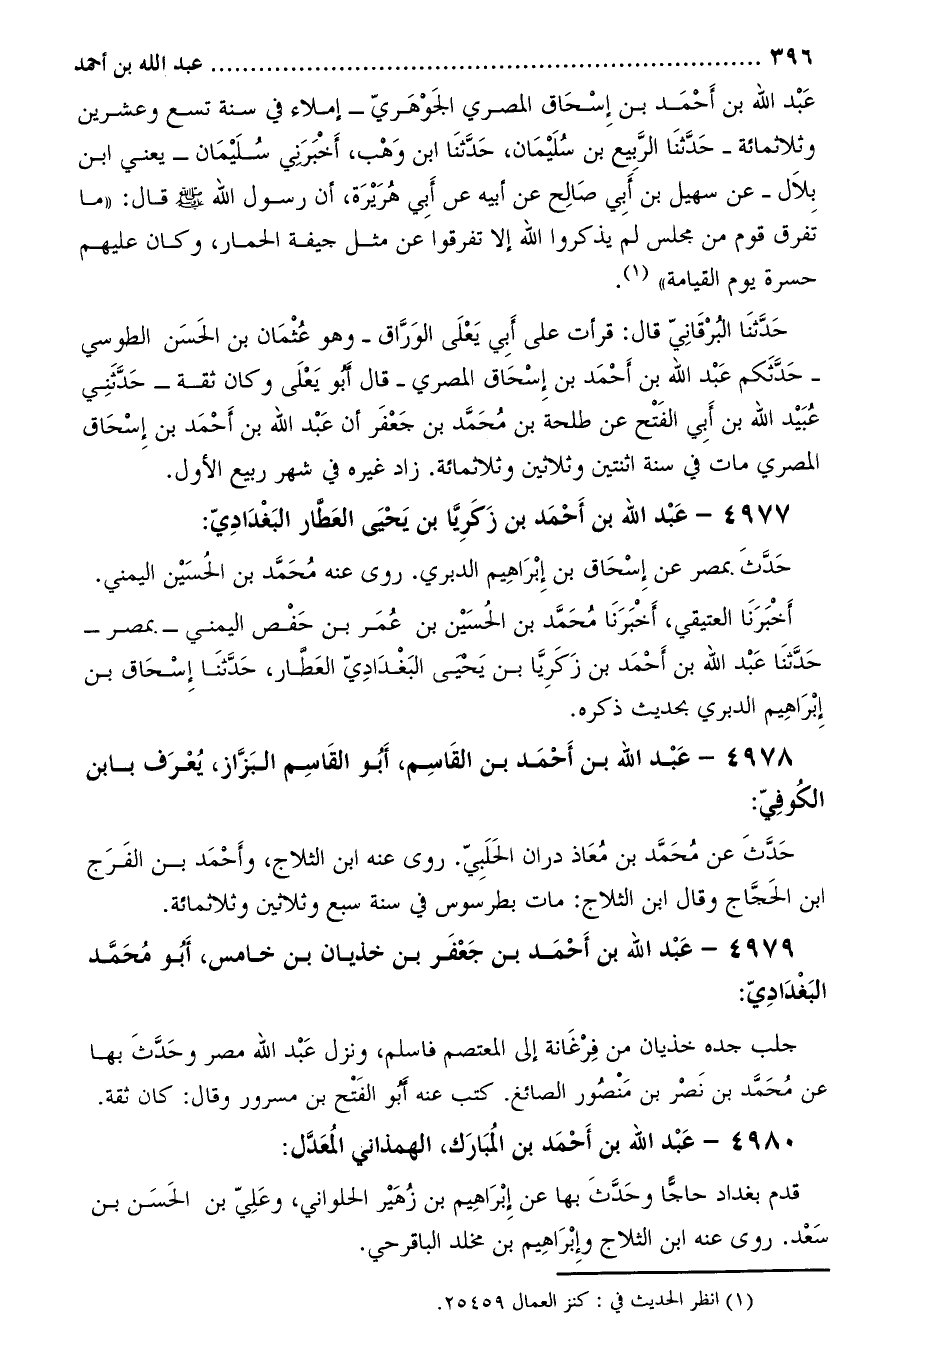 ٣٩٦ ..................................................................... عبد الله بن أحمد
عَبْد الله بن أَحْمَـد بـن إِسْحَاق المصري الجَوْهَـرِيّ ـ إمـلاء في سـنة تسـع وعشـرين
وثلاثمائة ـ حَدَّثَنَا الرَّبِيع بن سُلَيْمَان، حَدَّثَنَا ابن وَهْب، أَخْبَرَنِي سُـلَيْمَان ـ يعـني ابـن
بِلَال ـ عن سهيل بن أَبِي صَالِح عن أبيه عن أَبِي هُرَيْرَة، أن رسـول الله ﷺ قـال: «مـا
تفرق قوم من مجلس لم يذكروا الله إلا تفرقوا عن مثـل جيفـة الحمـار، وكـان عليهـم
حسرة يوم القيامة» (١).
حَدَّثَنَا البُرْقَانِيّ قال: قرأت على أَبِي يَعْلَى الوَرَّاق ـ وهو عُثْمَان بن الحَسَن الطوسي
ـ حَدَّثَكم عَبْد الله بن أَحْمَد بن إِسْحَاق المصري ـ قال أَبُو يَعْلَى وكان ثقـة ـ حَدَّثَنِـي
عُبَيْد الله بن أَبِي الفَتْح عن طلحة بن مُحَمَّد بن جَعْفَر أن عَبْد الله بن أَحْمَد بن إِسْحَاق
المصري مات في سنة اثنتين وثلاثين وثلاثمائة. زاد غيره في شهر ربيع الأول.
٤٩٧٧ – عَبْد الله بن أَحْمَد بن زَكَرِيَّا بن يَحْيَى العَطَّار البَغْدَادِيّ:
حَدَّثَ بمصر عن إِسْحَاق بن إِبْرَاهِيم الدبري. روى عنه مُحَمَّد بن الحُسَيْن اليمني.
أَخْبَرَنَا العتيقي، أَخْبَرَنَا مُحَمَّد بن الحُسَيْن بن عُمَـر بـن حَفْـص اليمنـي ـ بمصـر ـ
حَدَّثَنَا عَبْد الله بن أَحْمَد بن زَكَرِيَّا بـن يَحْيَـى البَغْـدَادِيّ العَطَّـار، حَدَّثَنَـا إِسْـحَاق بـن
إِبْرَاهِيم الدبري بحديث ذكره.
٤٩٧٨ – عَبْـد الله بـن أَحْمَـد بـن القَاسِـم، أَبُـو القَاسِـم الـبَزَّاز، يُعْـرَف بـابن
الكُوفِيّ:
حَدَّثَ عن مُحَمَّد بن مُعَاذ دران الحَلَبِيّ. روى عنه ابن الثلاج، وأَحْمَد بـن الفَـرَج
ابن الحَجَّاج وقال ابن الثلاج: مات بطرسوس في سنة سبع وثلاثين وثلاثمائة.
٤٩٧٩ – عَبْد الله بن أَحْمَـد بـن جَعْفَـر بـن خذيـان بـن خـامس، أَبُـو مُحَمَّـد
البَغْدَادِيّ:
جلب جده خذيان من فِرْغَانة إلى المعتصم فاسلم، ونزل عَبْد الله مصر وحَدَّثَ بهـا
عن مُحَمَّد بن نَصْر بن مَنْصُور الصائغ. كتب عنه أَبُو الفَتْح بن مسرور وقال: كان ثقة.
٤٩٨٠ – عَبْد الله بن أَحْمَد بن المُبَارَك، الهمذاني المُعَدَّل:
قدم بغداد حاجًّا وحَدَّثَ بها عن إِبْرَاهِيم بن زُهَيْر الحلواني، وعَلِيّ بن الحَسَـن بـن
سَعْد. روى عنه ابن الثلاج وإِبْرَاهِيم بن مخلد الباقرحي.
(١) انظر الحديث في : كنز العمال ٢٥٤٥٩.